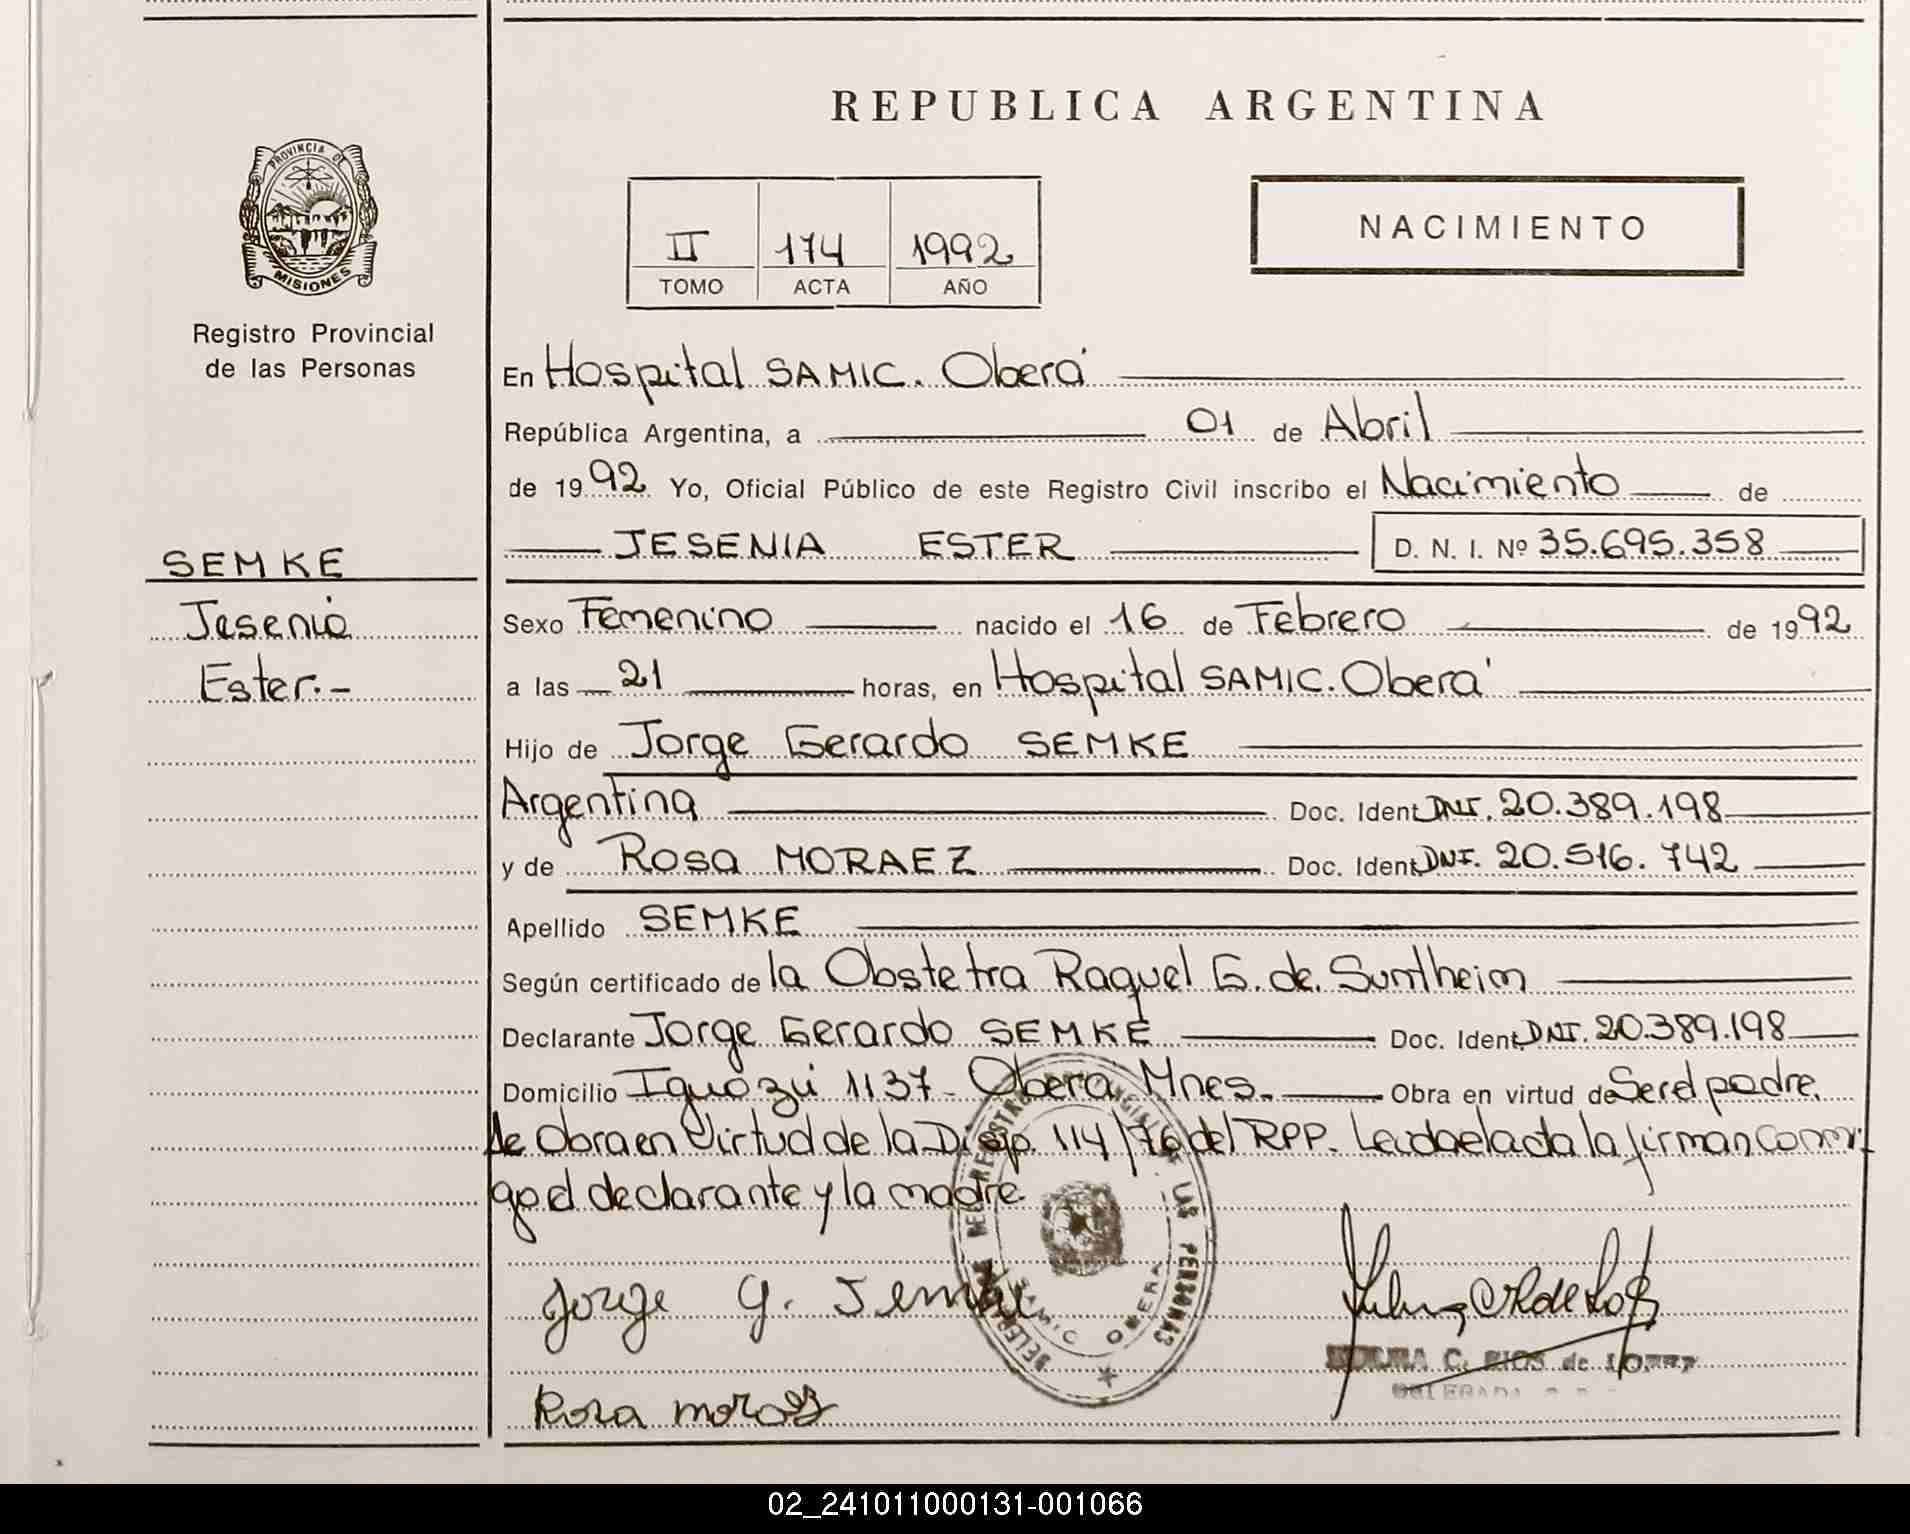 REPUBLICA ARGENTINA
PROVINCIA DE
MISIONES
Registro Provincial
de las Personas
II 174 1992
TOMO ACTA AÑO
NACIMIENTO
En Hospital SAMIC. Oberá
República Argentina, a 01 de Abril
de 1992. Yo, Oficial Público de este Registro Civil inscribo el Nacimiento de
JESENIA ESTER D. N. I. Nº 35.695.358
SEMKE
Jesenia
Ester.-
Sexo Femenino nacido el 16 de Febrero de 1992
a las 21 horas, en Hospital SAMIC. Oberá
Hijo de Jorge Gerardo SEMKE
Argentina Doc. Ident DNI. 20.389.198
y de Rosa MORAEZ Doc. Ident DNI. 20.516.742
Apellido SEMKE
Según certificado de la Obstetra Raquel G. de. Suntheim
Declarante Jorge Gerardo SEMKE Doc. Ident DNI. 20.389.198
Domicilio Iguazú 1137- Oberá Mnes. Obra en virtud de Ser el padre.
Se Obra en Virtud de la Disp. 114/76 del RPP. Leida el acta la firman conmi-
go el declarante y la madre.
Jorge G. Semke
DEL REGISTRO PROVINCIAL DE LAS PERSONAS
SAMIC OBERA
C. RIOS de LOPEZ
DELEGADA
Rosa moraez
02_241011000131-001066